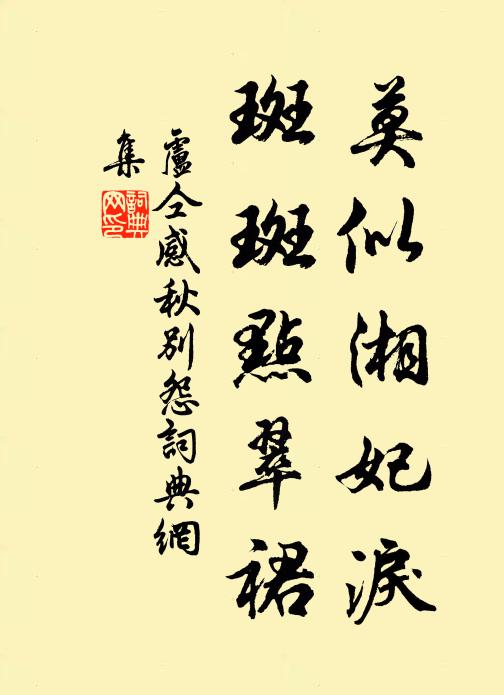 莫似湘妃淚
斑斑點翠裙
盧仝感秋別怨詞典網
集
詞典
网印